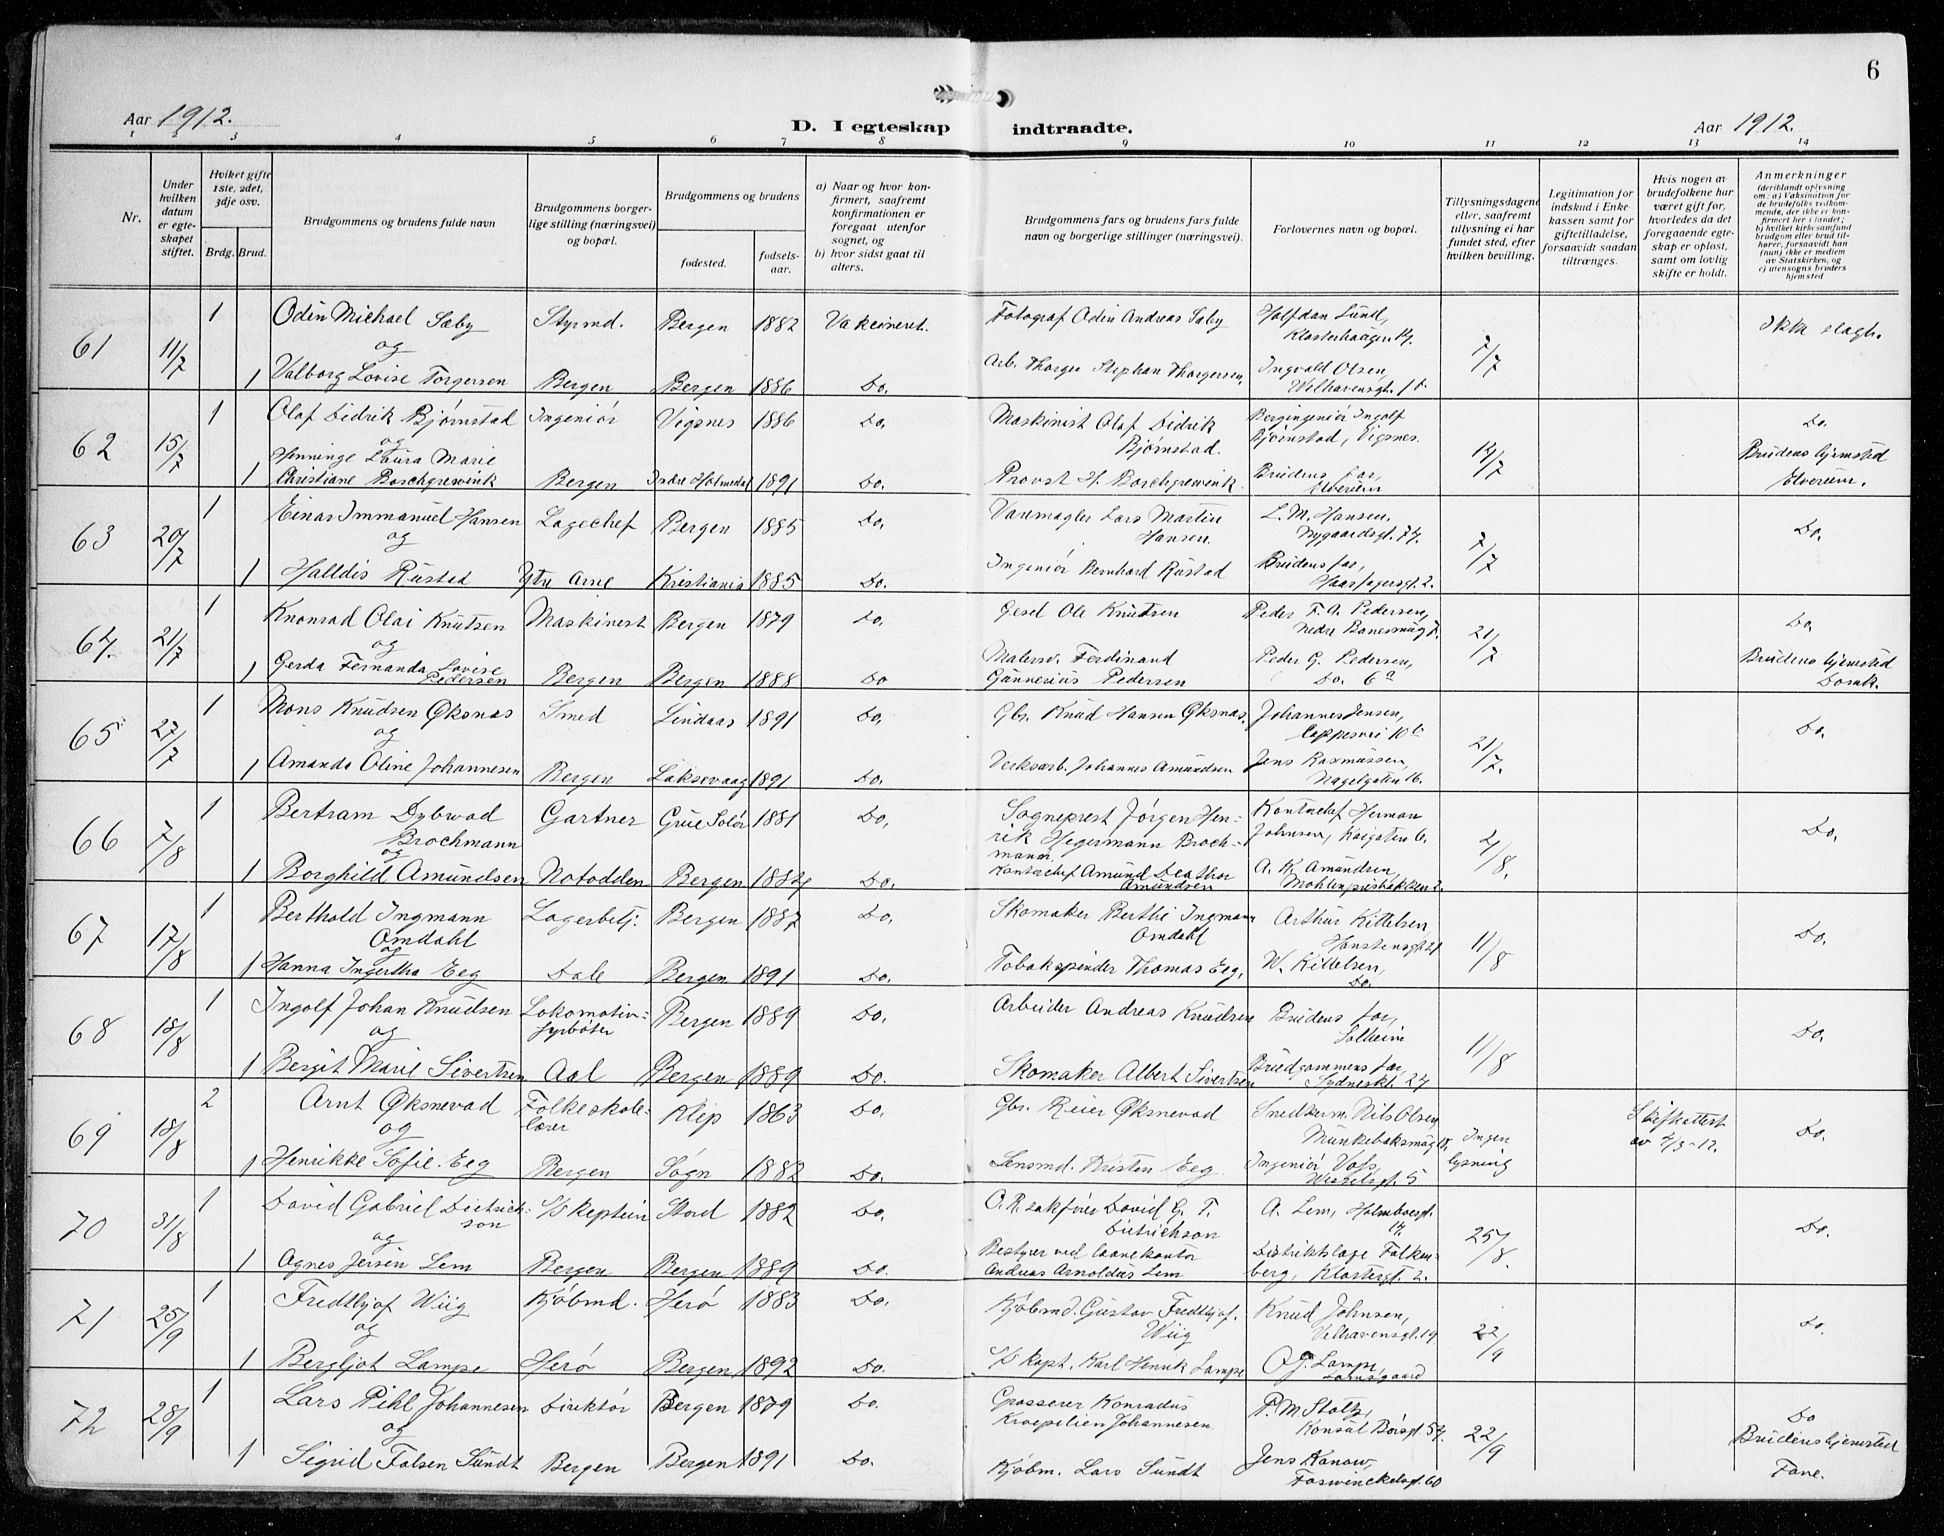 6
Aar 1912.
D. I egteskap indtraadte.
Aar 1912.
1 2 3 4 5 6 7 8 9 10 11 12 13 14
Nr.
Under hvilken datum er egteskapet stiftet.
Hvilket gifte 1ste, 2det, 3dje osv.
Brdg. Brud.
Brudgommens og brudens fulde navn
Brudgommens borgerlige stilling (næringsvei) og bopæl.
Brudgommens og brudens
fødested. fødselsaar.
a) Naar og hvor konfirmert, saafremt konfirmationen er foregaat utenfor sognet, og
b) hvor sidst gaat til alters.
Brudgommens fars og brudens fars fulde navn og borgerlige stillinger (næringsvei).
Forlovernes navn og bopæl.
Tillysningsdagene eller, saafremt tillysning ei har fundet sted, efter hvilken bevilling.
Legitimation for indskud i Enkekassen samt for giftetilladelse, forsaavidt saadan tiltrænges.
Hvis nogen av brudefolkene har været gift før, hvorledes da det foregaaende egteskap er opløst, samt om lovlig skifte er holdt.
Anmerkninger
(deriblandt oplysning om: a) Vaksination for de brudefolks vedkommende, der ikke er konfirmert her i landet; b) hvilket kirkesamfund brudgom eller brud tilhører, forsaavidt han (hun) ikke er medlem av Statskirken, og c) utensogns bruders hjemsted
61 11/7 1 Odin Michael Sæby Styrmd. Bergen 1882 Vakcineret. Fotograf Odin Andreas Sæby Halfdan Lund, Klosterhaugen 14. 7/7 Ikke slagt.
og
1 Valborg Lovise Torgersen Bergen Bergen 1886 Do. Arb. Thorger Stephan Thorgersen, Ingvald Olsen, Welhavensgt.
62 15/7 1 Olaf Didrik Bjørnstad Ingeniør Vigsnes 1886 Do. Maskinist Olaf Didrik Bjørnstad. Bergingeniør Ingolf Bjørnstad, Vigsnes. 14/7 Do.
og
1 Henninge Laura Marie Christiane Borchgrevink Bergen Indre Holmedal 1891 Do. Provst H. Borchgrevink. Brudens far, Elverum Brudens hjemsted Elverum.
63 20/7 1 Einar Immanuel Hansen Lagerchef Bergen 1885 Do. Varemægler Lars Martin Hansen. L. M. Hansen, Nygaardsgt. 74. 7/7 Do.
og
1 Halldis Rustad Ytr Arne Kristiania 1885 Do. Ingeniør Bernhard Rustad Brudens far, Haarfagersgt. 2.
64. 21/7 1 Knonrad Olai Knutsen Maskinest Bergen 1879 Do. Gesel Ole Knutsen Peder F. A. Pedersen, Nedre 21/7 Do.
og
1 Gerda Fernanda Lovise Pedersen Bergen Bergen 1888 Do Malersv. Ferdinand Gunnerius Pedersen Peder G. Pedersen, Do. 6a Brudens hjemsted Domk.
65 27/7 1 Mons Knudsen Øksnæs Smed Lindaas 1891 Do. Gbr. Knud Hansen Øksnæs. Johannes Jensen, 10 21/7. Do.
og
1 Amanda Oline Johannesen Bergen Laksevaag 1891 Do. Verksarb. Johannes Amundsen Jens Rasmussen, Nagelgaten 16.
66 7/8 1 Bertram Dybwad Brochmann Gartner Grue Solør 1881 Do, Sogneprest Jørgen Henrik Hegermann Brochmann. Kontrchef Herman Johnsen, Kaigaten 6. 4/8. Do.
og
1 Borghild Amundsen Notodden Bergen 1884 Do. Kontorchef Amund Amundsen A. K. Amundsen, Møhlenprisbakken 2.
67 17/8 1 Berthold Ingmann Omdahl Lagerbetj: Bergen 1887 Do. Skomaker Berthi Ingmann Omdahl Arthur Kittelsen, Hansteensgt. 21 11/8 Do.
og
1 Hanna Ingertha Eeg Dale Bergen 1891 Do. Tobakspinder Thomas Eeg, W. Kittelsen, Do.
68 18/8 1 Ingolf Johan Knudsen Lokomotivfyrbøter Bergen 1889 Do. Arbeider Andreas Knudsen Brudens far, Solheim 11/8 Do.
og
1 Bergit Marie Sivertsen Aal Bergen 1889 Do. Skomaker Albert Sivertsen Brudgommens far, Sydneskl. 24
69 18/8 2 Arnt Øksnevad Folkeskolelærer Klep 1863 Do. Gbr. Reier Øksnevad Snedkerm. Nils Olsen, Munkebæksmug Ingen lysning Skifteattest av 4/3-12. Do.
og
1 Henrikke Sofie Eeg Bergen Sogn 1882 Do. Lensmd. Kristen Eeg Ingeniør Voss, Wesselsgt. 5
70 31/8 1 David Gabriel Dietrichson S/S kaptein Stord 1882 Do. O.R. sakfører David G. T. Dietrichson A. Lem, Holmboesgt. 14. 25/8. Do.
og
1 Agnes Jersin Lem Bergen Bergen 1889 Do. Bestyrer ved laanekontor Andreas Arnoldus Lem Distriktslæge Falkenberg, Klostergt. 2.
71 25/9 1 Fredthjof Wiig Kjøbmd. Herø 1883 Do. Kjøbmd. Gustav Fredthjof. Wiig Knud Johnsen, Velhavensgt. 19 22/9 Do.
og
1 Bergljot Lampe Herø Bergen 1892 Do. S/S kapt. Karl Henrik Lampe O. J. Lampe,
72 28/9 1 Lars Pihl Johannesen Direktør Bergen 1879 Do. Grosserer Konradus Kroepelien Johannesen. P. M Stoltz, Konsul Børsgt 54. 22/9 Do
og
1 Sigrid Falsen Sundt Bergen Bergen 1891 Do. Kjøbm. Lars Sundt Jens Kanow, Fosswinckelsgt. 60 Brudens hjemsted Fane.